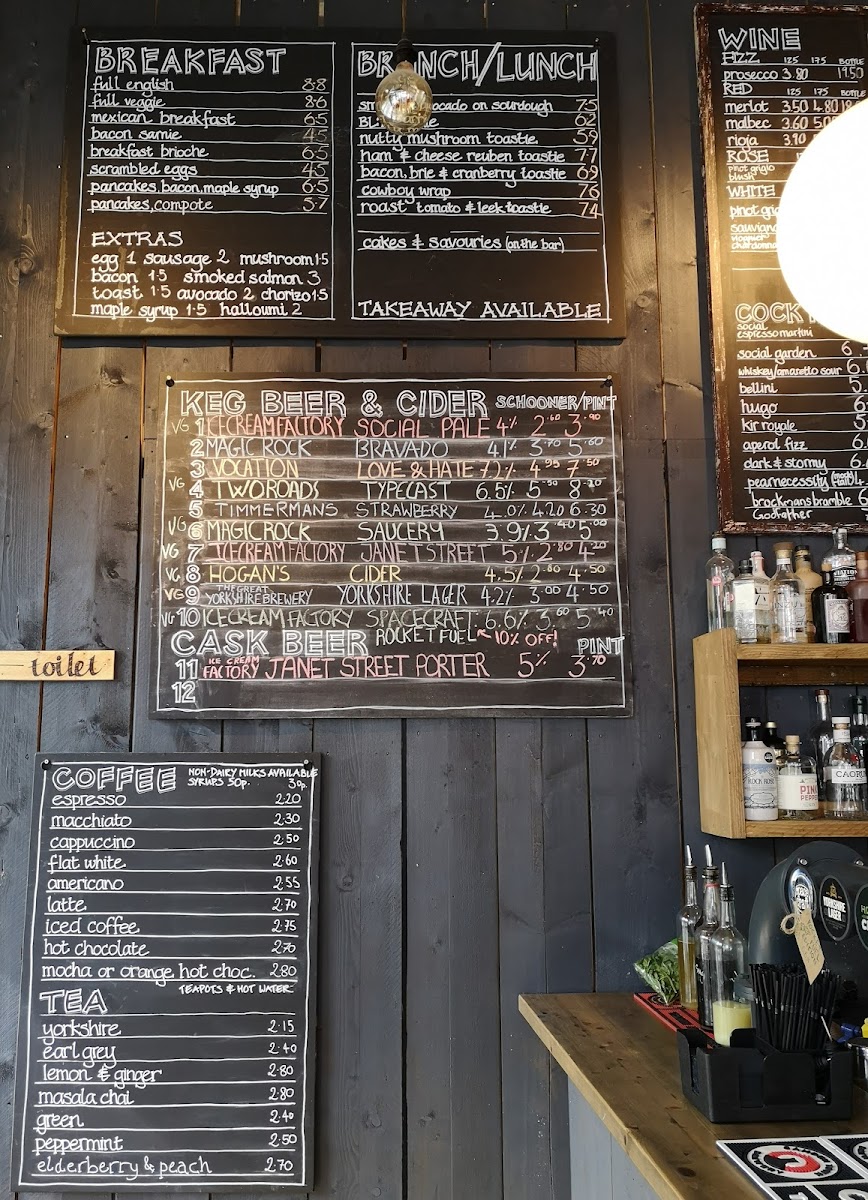 BREAKFAST
full english 8.8
full veggie 8.6
mexican breakfast 6.5
bacon sarnie 4.5
breakfast brioche 6.5
scrambled eggs 4.5
pancakes, bacon, maple syrup 6.5
pancakes, compote 5.7
EXTRAS
egg 1 sausage 2 mushroom 1.5
bacon 1.5 smoked salmon 3
toast 1.5 avocado 2 chorizo 1.5
maple syrup 1.5 halloumi 2
BRUNCH/LUNCH
avocado on sourdough 7.5
6.2
nutty mushroom toastie 5.9
ham & cheese reuben toastie 7.7
bacon, brie & cranberry toastie 6.9
cowboy wrap 7.6
roast tomato & leek toastie 7.4
cakes & savouries (on the bar)
TAKEAWAY AVAILABLE
WINE
FIZZ 125 175 BOTTLE
prosecco 3.80 19.50
RED 125 175 BOTTLE
merlot 3.50 4.80
malbec 3.60
rioja 3.90
ROSE
pinot grigio
blush
WHITE
pinot
COCK
social
espresso martini
social garden 6
whiskey/amaretto sour
bellini
hugo
kir royale
aperol fizz
dark & stormy
pearnecessity
brockmans bramble
Godfather
KEG BEER & CIDER SCHOONER/PINT
VG 1 ICE CREAM FACTORY SOCIAL PALE 4% 2.60 3.90
2 MAGIC ROCK BRAVADO 4.1% 3.70 5.60
3 VOCATION LOVE & HATE 7.2% 4.95 7.50
VG 4 TWO ROADS TYPECAST 6.5% 5.50 8.20
5 TIMMERMANS STRAWBERRY 4.0% 4.20 6.30
VG 6 MAGIC ROCK SAUCERY 3.9% 3.40 5.00
VG 7 ICE CREAM FACTORY JANET STREET 5% 2.80 4.20
VG 8 HOGAN'S CIDER 4.5% 2.80 4.50
VG 9 THE GREAT YORKSHIRE BREWERY YORKSHIRE LAGER 4.2% 3.00 4.50
VG 10 ICE CREAM FACTORY SPACECRAFT 6.6% 3.60 5.40
ROCKET FUEL 10% OFF!
CASK BEER PINT
11 ICE CREAM FACTORY JANET STREET PORTER 5% 3.70
12
toilet
COFFEE NON-DAIRY MILKS AVAILABLE 30p.
SYRUPS 50p.
espresso 2.20
macchiato 2.30
cappuccino 2.50
flat white 2.60
americano 2.55
latte 2.70
iced coffee 2.75
hot chocolate 2.70
mocha or orange hot choc. 2.80
TEAPOTS & HOT WATER
TEA
yorkshire 2.15
earl grey 2.40
lemon & ginger 2.80
masala chai 2.80
green 2.40
peppermint 2.50
elderberry & peach 2.70
YORKSHIRE
LAGER